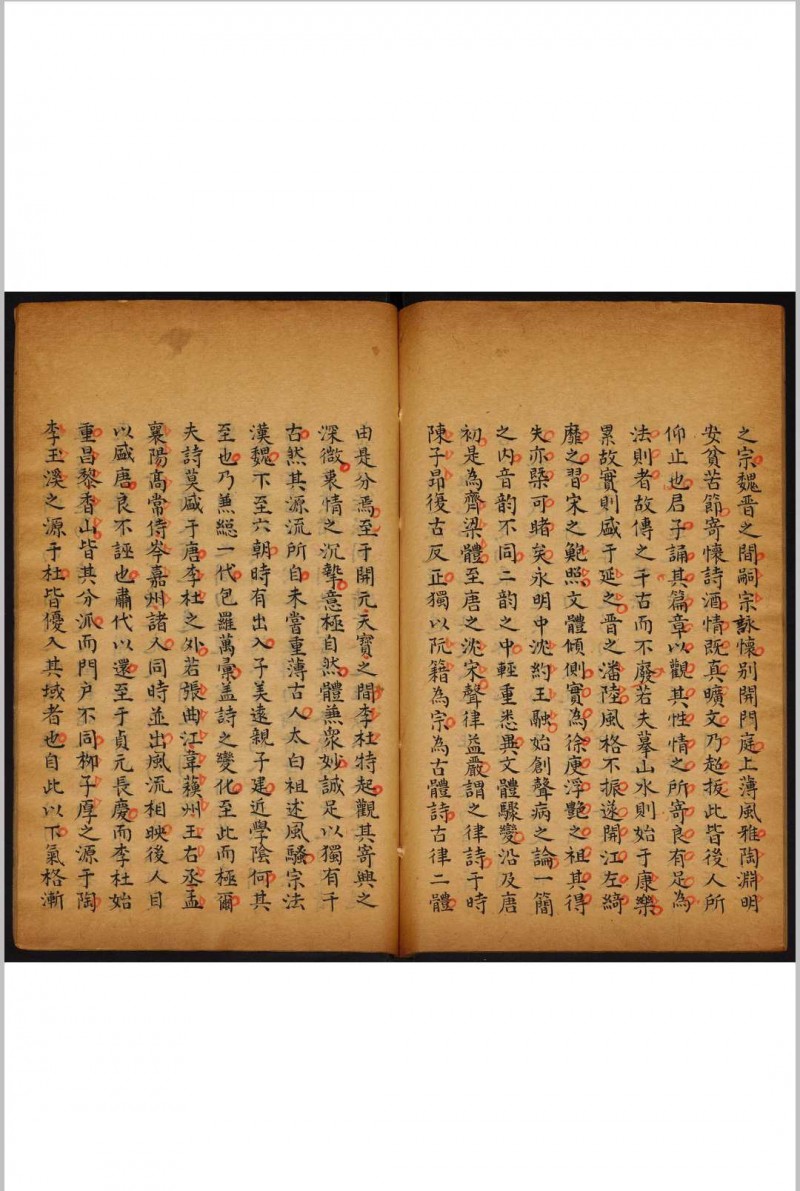 之宗魏晋之間嗣宗詠懷別開門庭上薄風雅陶淵明
安貧苦節寄懷詩酒情既真曠文乃超拔此皆後人所
仰止也君子誦其篇章以觀其性情之所寄良有足為
法則者故傳之千古而不廢若夫摹山水則始于康樂
累故實則盛于延之晋之潘陸風格不振遂開江左綺
靡之習宋之鮑照文體傾側實為徐庾浮艷之祖其得
失亦槩可睹矣永明中沈約王融始創聲病之論一簡
之内音韵不同二韵之中輕重悉異文體驟變沿及唐
初是為齊梁體至唐之沈宋聲律益嚴謂之律詩于時
陳子昂復古反正獨以阮籍為宗為古體詩古律二體
由是分焉至于開元天寶之間李杜特起觀其寄興之
深微褁情之沉摯意極自然體兼衆妙誠足以獨有千
古然其源流所自未嘗重薄古人太白祖述風騷宗法
漢魏下至六朝時有出入子美遠親子建近學陰何其
至也乃兼總一代包羅萬彙盖詩之變化至此而極爾
夫詩莫盛于唐李杜之外若張曲江韋蘇州王右丞孟
襄陽高常侍岑嘉州諸人同時並出風流相映後人目
以盛唐良不誣也肅代以還至于貞元長慶而李杜始
重昌黎香山皆其分派而門户不同柳子厚之源于陶
李玉溪之源于杜皆優入其域者也自此以下氣格漸